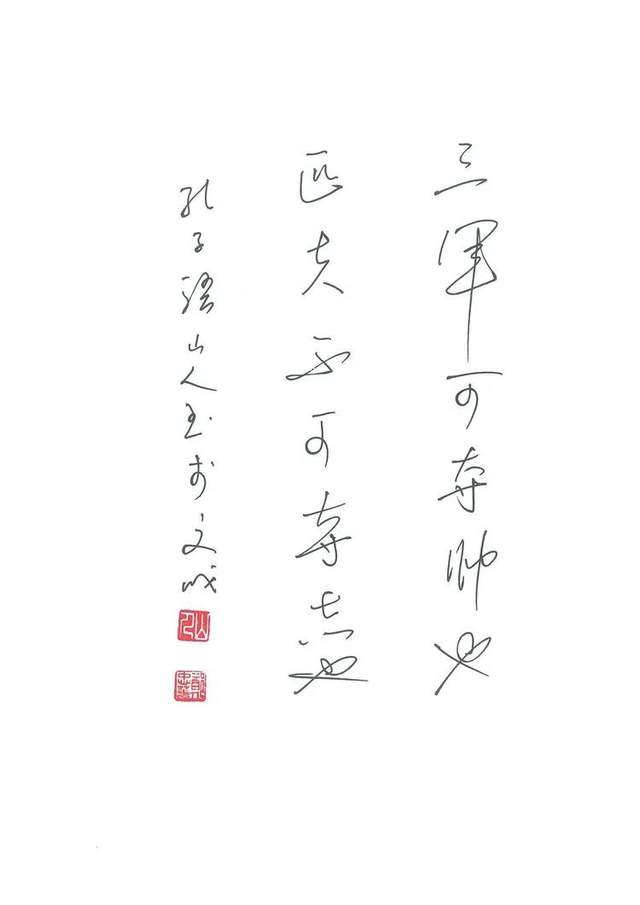 三军可夺帅也
匹夫不可夺志也
孔子语山人书于文成
山人